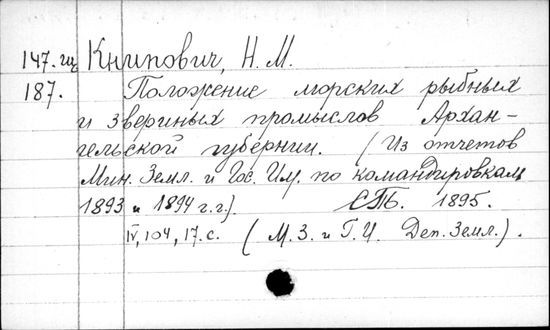 147.гц Книпович, Н. М.
187. Положение морских рыбных
и звериных промыслов Архан-
гельской губернии. (Из отчетов
Мин. Земл. и Гос. Им. по командировкам
1893 и 1894 г.г.). СПб. 1895.
IV, 104, 17. с. (М. З. и Г. И. Деп. Земл.).